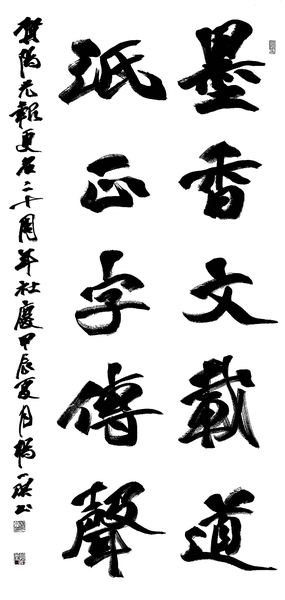 墨香文載道
紙正字傳聲
賀陽光報更名二十周年社慶甲辰夏月楊一璞書